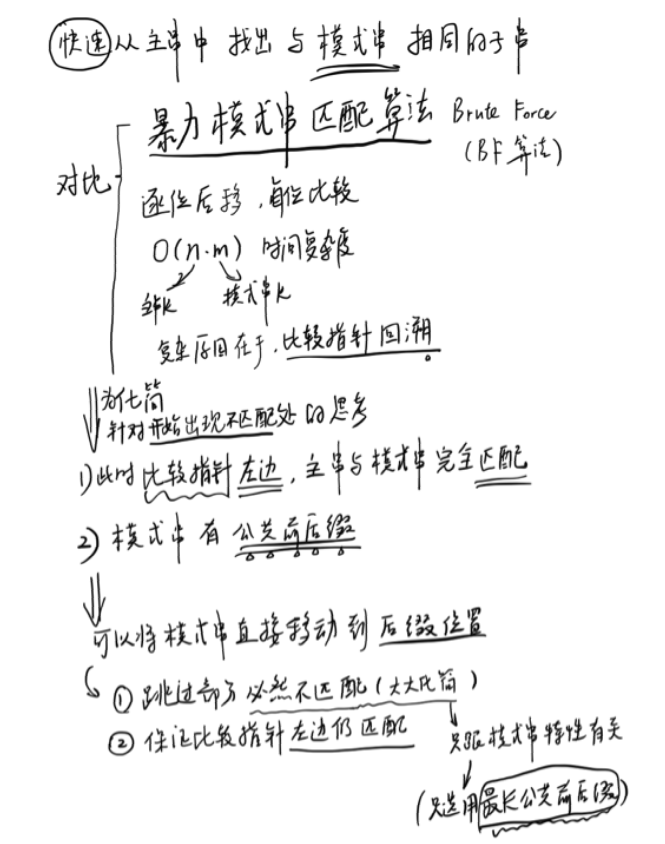 快速从主串中 找出与模式串 相同的子串
暴力模式串匹配算法 Brute Force
(BF算法)
对比
逐位后移,每位比较
O(n·m) 时间复杂度
主串长 模式串长
复杂原因在于,比较指针回溯。
为化简
针对开始出现不匹配处的思考
1)此时比较指针左边,主串与模式串完全匹配
2)模式串有公共前后缀
可以将模式串直接移动到后缀位置
① 跳过部分必然不匹配(大大化简)
② 保证比较指针左边仍匹配
只跟模式串特性有关
(只选用最长公共前后缀)